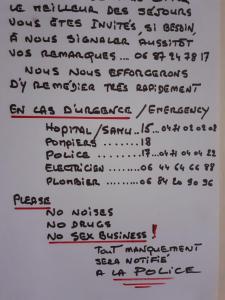 LE MEILLEUR DES SÉJOURS
VOUS ÊTES INVITÉS, SI BESOIN,
À NOUS SIGNALER AUSSITÔT
VOS REMARQUES... 06 87 24 78 17
NOUS NOUS EFFORCERONS
D'Y REMÉDIER TRÈS RAPIDEMENT
EN CAS D'URGENCE / EMERGENCY
HOPITAL/SAMU..15...04 71 02 02 02
POMPIERS.......18
POLICE.........17...04 71 04 04 22
ELECTRICIEN.....06 44 64 66 88
PLOMBIER......06 84 20 90 96
PLEASE
NO NOISES
NO DRUGS
NO SEX BUSINESS !
TOUT MANQUEMENT
SERA NOTIFIÉ
A LA POLICE